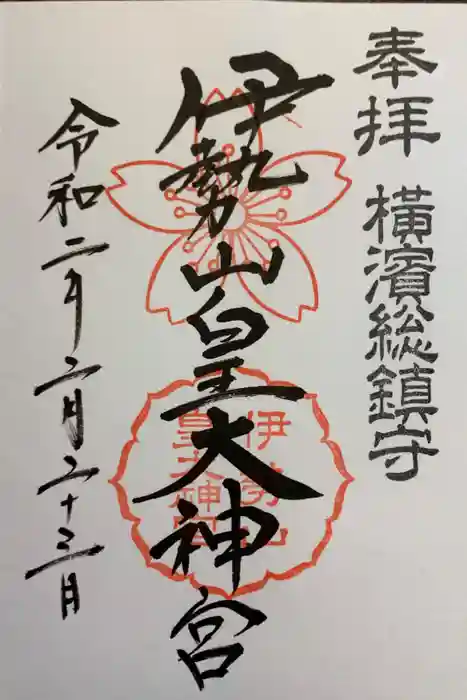 奉拝 横濱総鎮守
伊勢山皇大神宮
伊勢山
皇大神宮
令和二年二月二十三日